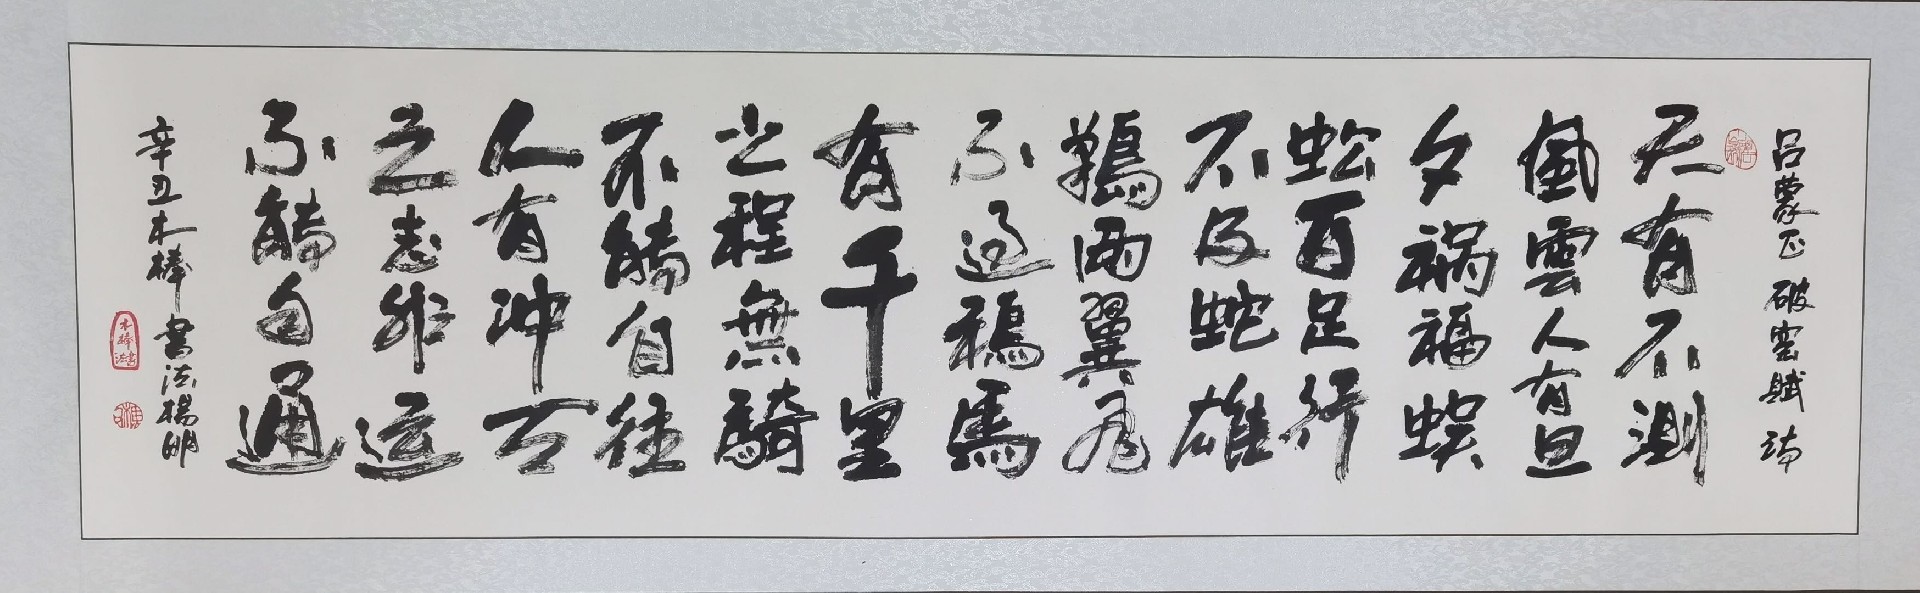 吕蒙正 破窑赋 诗
天有不测
風雲人有旦
夕祸福蜈
蚣百足行
不及蛇雄
鷄兩翼飛
不過鴉馬
有千里
之程無騎
不能自往
人有冲天
之志非运
不能自通
辛丑木棒書法楊明
木棒書法